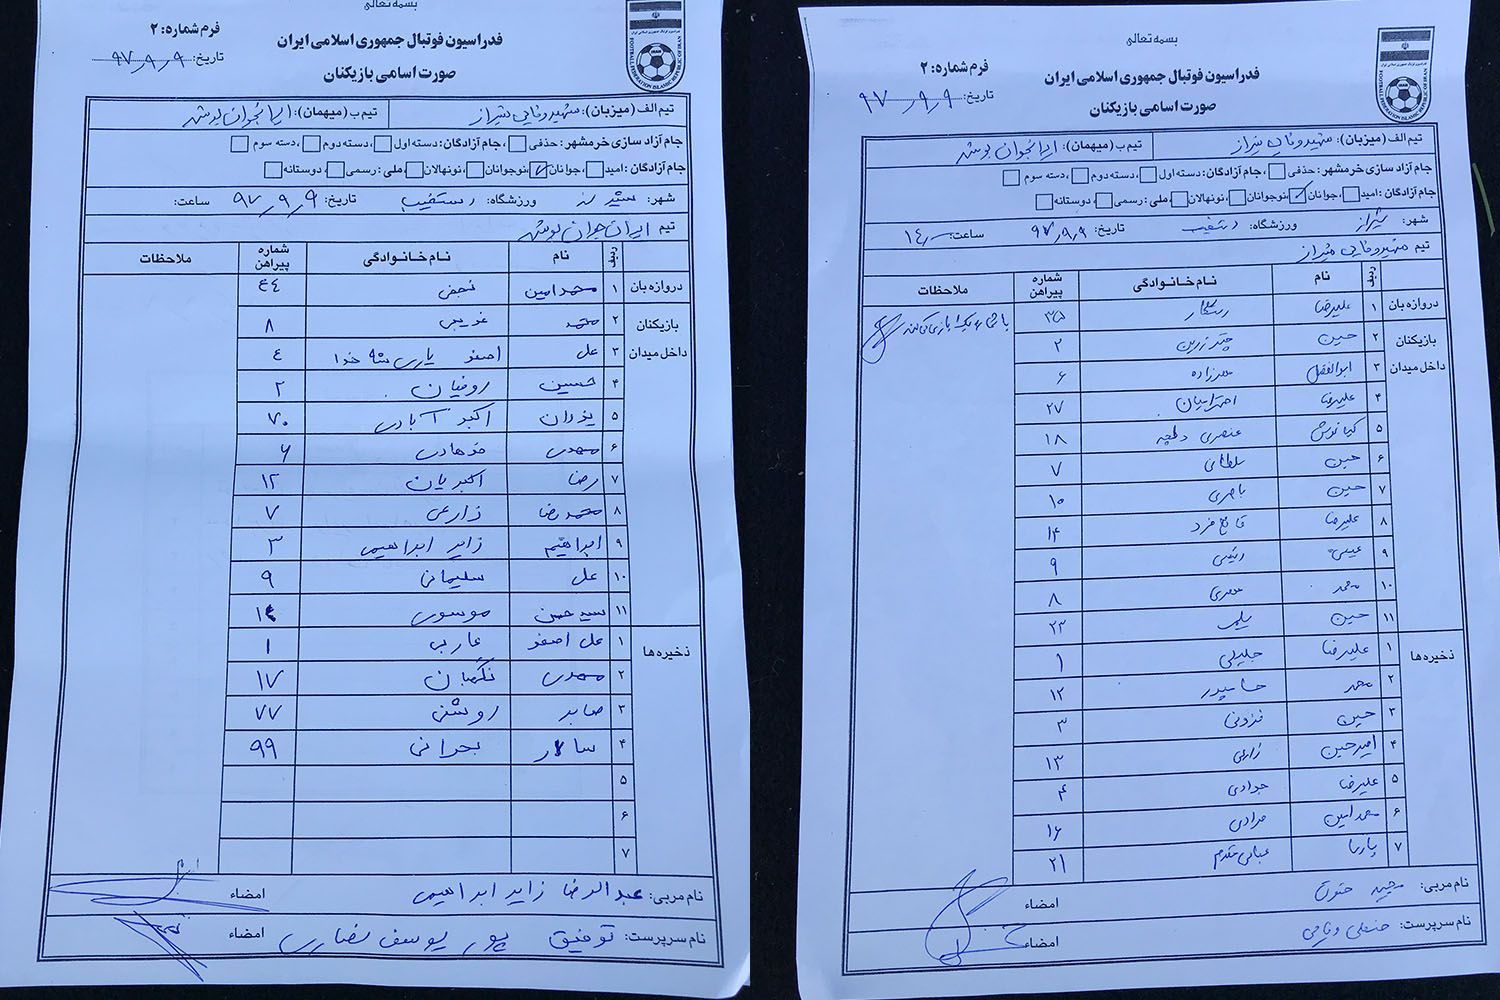 بسمه تعالی
فدراسیون فوتبال جمهوری اسلامی ایران
صورت اسامی بازیکنان
فرم شماره: ۲
تاریخ: ۹۷,۹,۹
تیم الف (میزبان): شهید وفایی شیراز تیم ب (میهمان): ایرانجوان بوشهر
جام آزاد سازی خرمشهر: حذفی ، جام آزادگان: دسته اول ، دسته دوم ، دسته سوم
جام آزادگان: امید ، جوانان ، نوجوانان ، نونهالان ، ملی: رسمی ، دوستانه
شهر: شیراز ورزشگاه: دستغیب تاریخ: ۹۷,۹,۹ ساعت:
تیم ایران جوان بوشهر
ردیف نام نام خانوادگی شماره پیراهن ملاحظات
دروازه بان ۱ محمد امین نجفی ۴۴
بازیکنان داخل میدان
۲ محمد غریبی ۸
۳ علی اصغر ۴
۴ حسین ۲
۵ یزدان اکبر آبادی ۷۰
۶ مهدی فرهادی ۶
۷ رضا اکبریان ۱۲
۸ محمدرضا زارعی ۷
۹ ابراهیم زایر ابراهیمی ۳
۱۰ علی سلیمانی ۹
۱۱ سید حسن موسوی ۱۴
ذخیره ها
۱ علی اصغر ۱
۲ مهدی نگهبان ۱۷
۳ صابر روشنی ۷۷
۴ سالار بحرانی ۹۹
۵
۶
۷
نام مربی: عبدالرضا زایر ابراهیمی امضاء
نام سرپرست: توفیق پور یوسف نصاری امضاء
بسمه تعالی
فدراسیون فوتبال جمهوری اسلامی ایران
صورت اسامی بازیکنان
فرم شماره: ۲
تاریخ: ۹۷,۹,۹
تیم الف (میزبان): شهید وفایی شیراز تیم ب (میهمان): ایرانجوان بوشهر
جام آزاد سازی خرمشهر: حذفی ، جام آزادگان: دسته اول ، دسته دوم ، دسته سوم
جام آزادگان: امید ، جوانان ، نوجوانان ، نونهالان ، ملی: رسمی ، دوستانه
شهر: شیراز ورزشگاه: دستغیب تاریخ: ۹۷,۹,۹ ساعت: ۱۴
تیم شهید وفایی شیراز
ردیف نام نام خانوادگی شماره پیراهن ملاحظات
دروازه بان ۱ علیرضا رستگار
بازیکنان داخل میدان
۲ حسین چتر زرین ۲
۳ ابوالفضل ۶
۴ علیرضا ۲۷
۵ کیانوش عنصری ۱۸
۶ حسین سلطانی ۷
۷ حسین ۱۰
۸ علیرضا قانع فرد ۱۴
۹ عیسی رئیسی ۹
۱۰ محمد ۸
۱۱ حسین ۲۳
ذخیره ها
۱ علیرضا جلیلی ۱
۲ محمد حسامپور ۱۲
۳ حسین فزونی ۳
۴ امیرحسین زارعی ۱۳
۵ علیرضا جوادی ۴
۶ محمد امین مرادی ۱۶
۷ پارسا عباسی مقدم ۲۱
نام مربی: مجید امضاء
نام سرپرست: وفایی امضاء